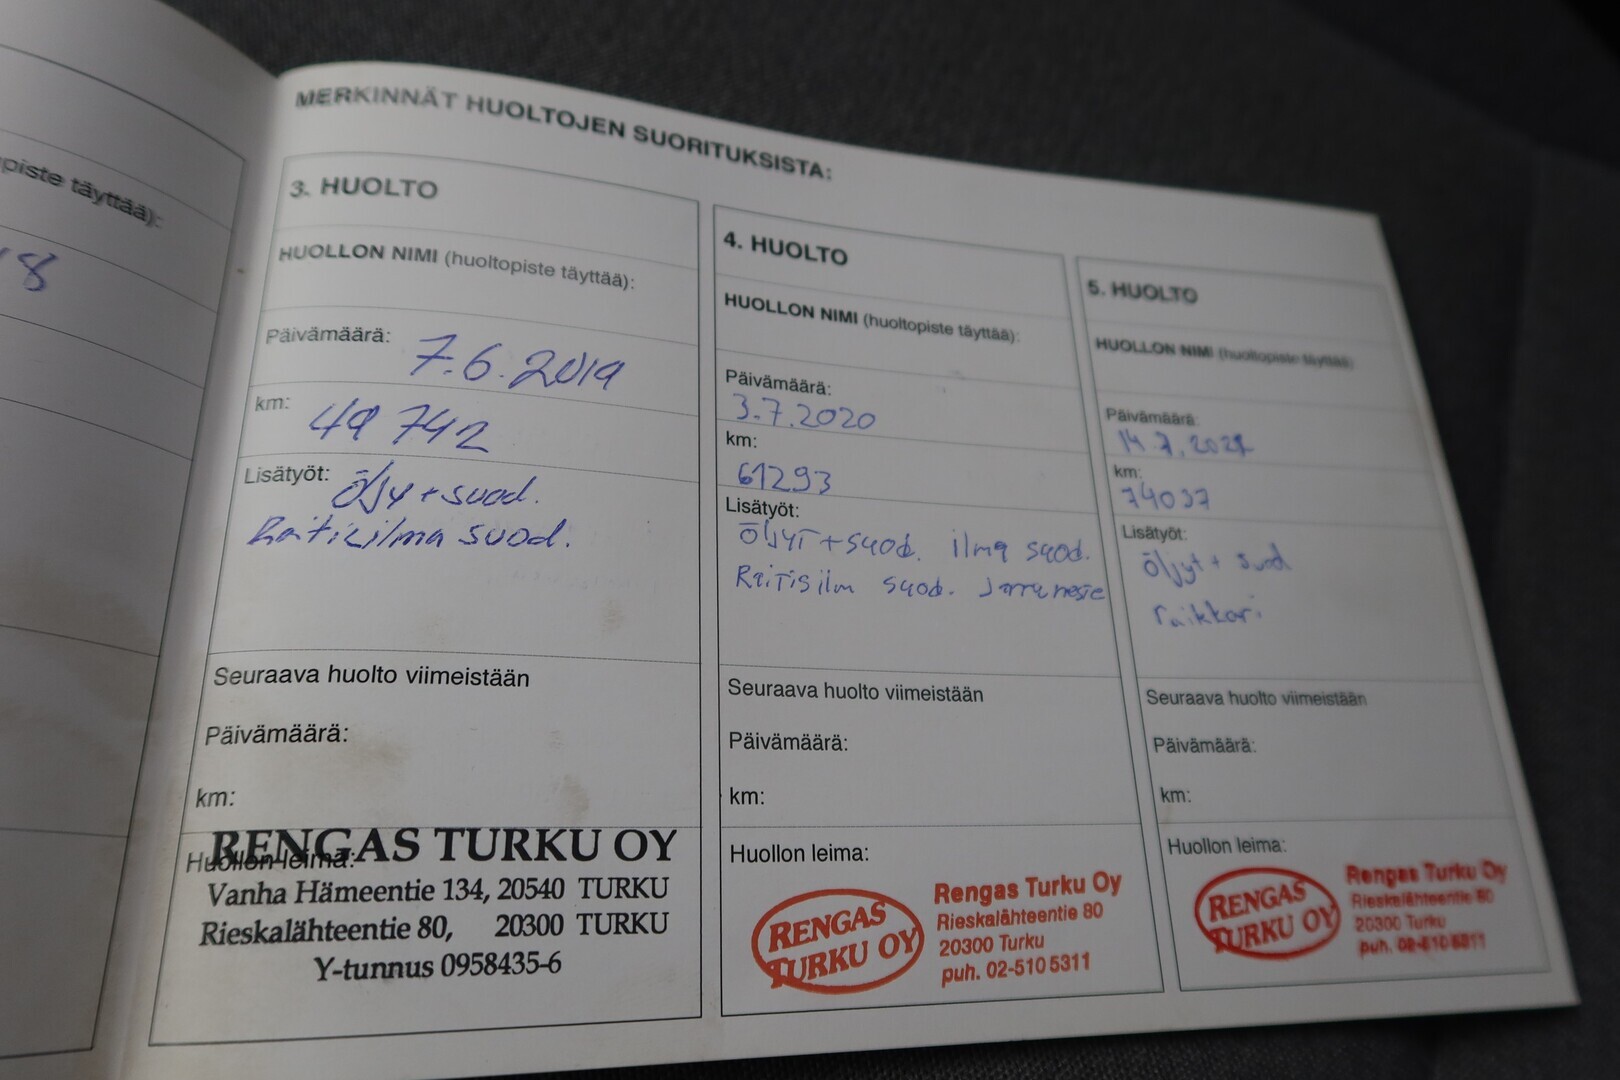 piste täyttää):
8
MERKINNÄT HUOLTOJEN SUORITUKSISTA:
3. HUOLTO
HUOLLON NIMI (huoltopiste täyttää):
Päivämäärä: 7.6.2019
km: 49 742
Lisätyöt: öljy + suod.
Raitisilma suod.
Seuraava huolto viimeistään
Päivämäärä:
km:
Huollon leima:
RENGAS TURKU OY
Vanha Hämeentie 134, 20540 TURKU
Rieskalähteentie 80, 20300 TURKU
Y-tunnus 0958435-6
4. HUOLTO
HUOLLON NIMI (huoltopiste täyttää):
Päivämäärä:
3.7.2020
km:
61293
Lisätyöt:
öljyt + suod. ilma suod.
Raitisilm suod. Jarruneste
Seuraava huolto viimeistään
Päivämäärä:
km:
Huollon leima:
RENGAS
TURKU OY
Rengas Turku Oy
Rieskalähteentie 80
20300 Turku
puh. 02-510 5311
5. HUOLTO
HUOLLON NIMI (huoltopiste täyttää)
Päivämäärä:
14.7.2021
km:
74037
Lisätyöt:
öljyt + suod
Seuraava huolto viimeistään
Päivämäärä:
km:
Huollon leima:
RENGAS
TURKU OY
Rengas Turku Oy
Rieskalähteentie 80
20300 Turku
puh. 02-510 5311